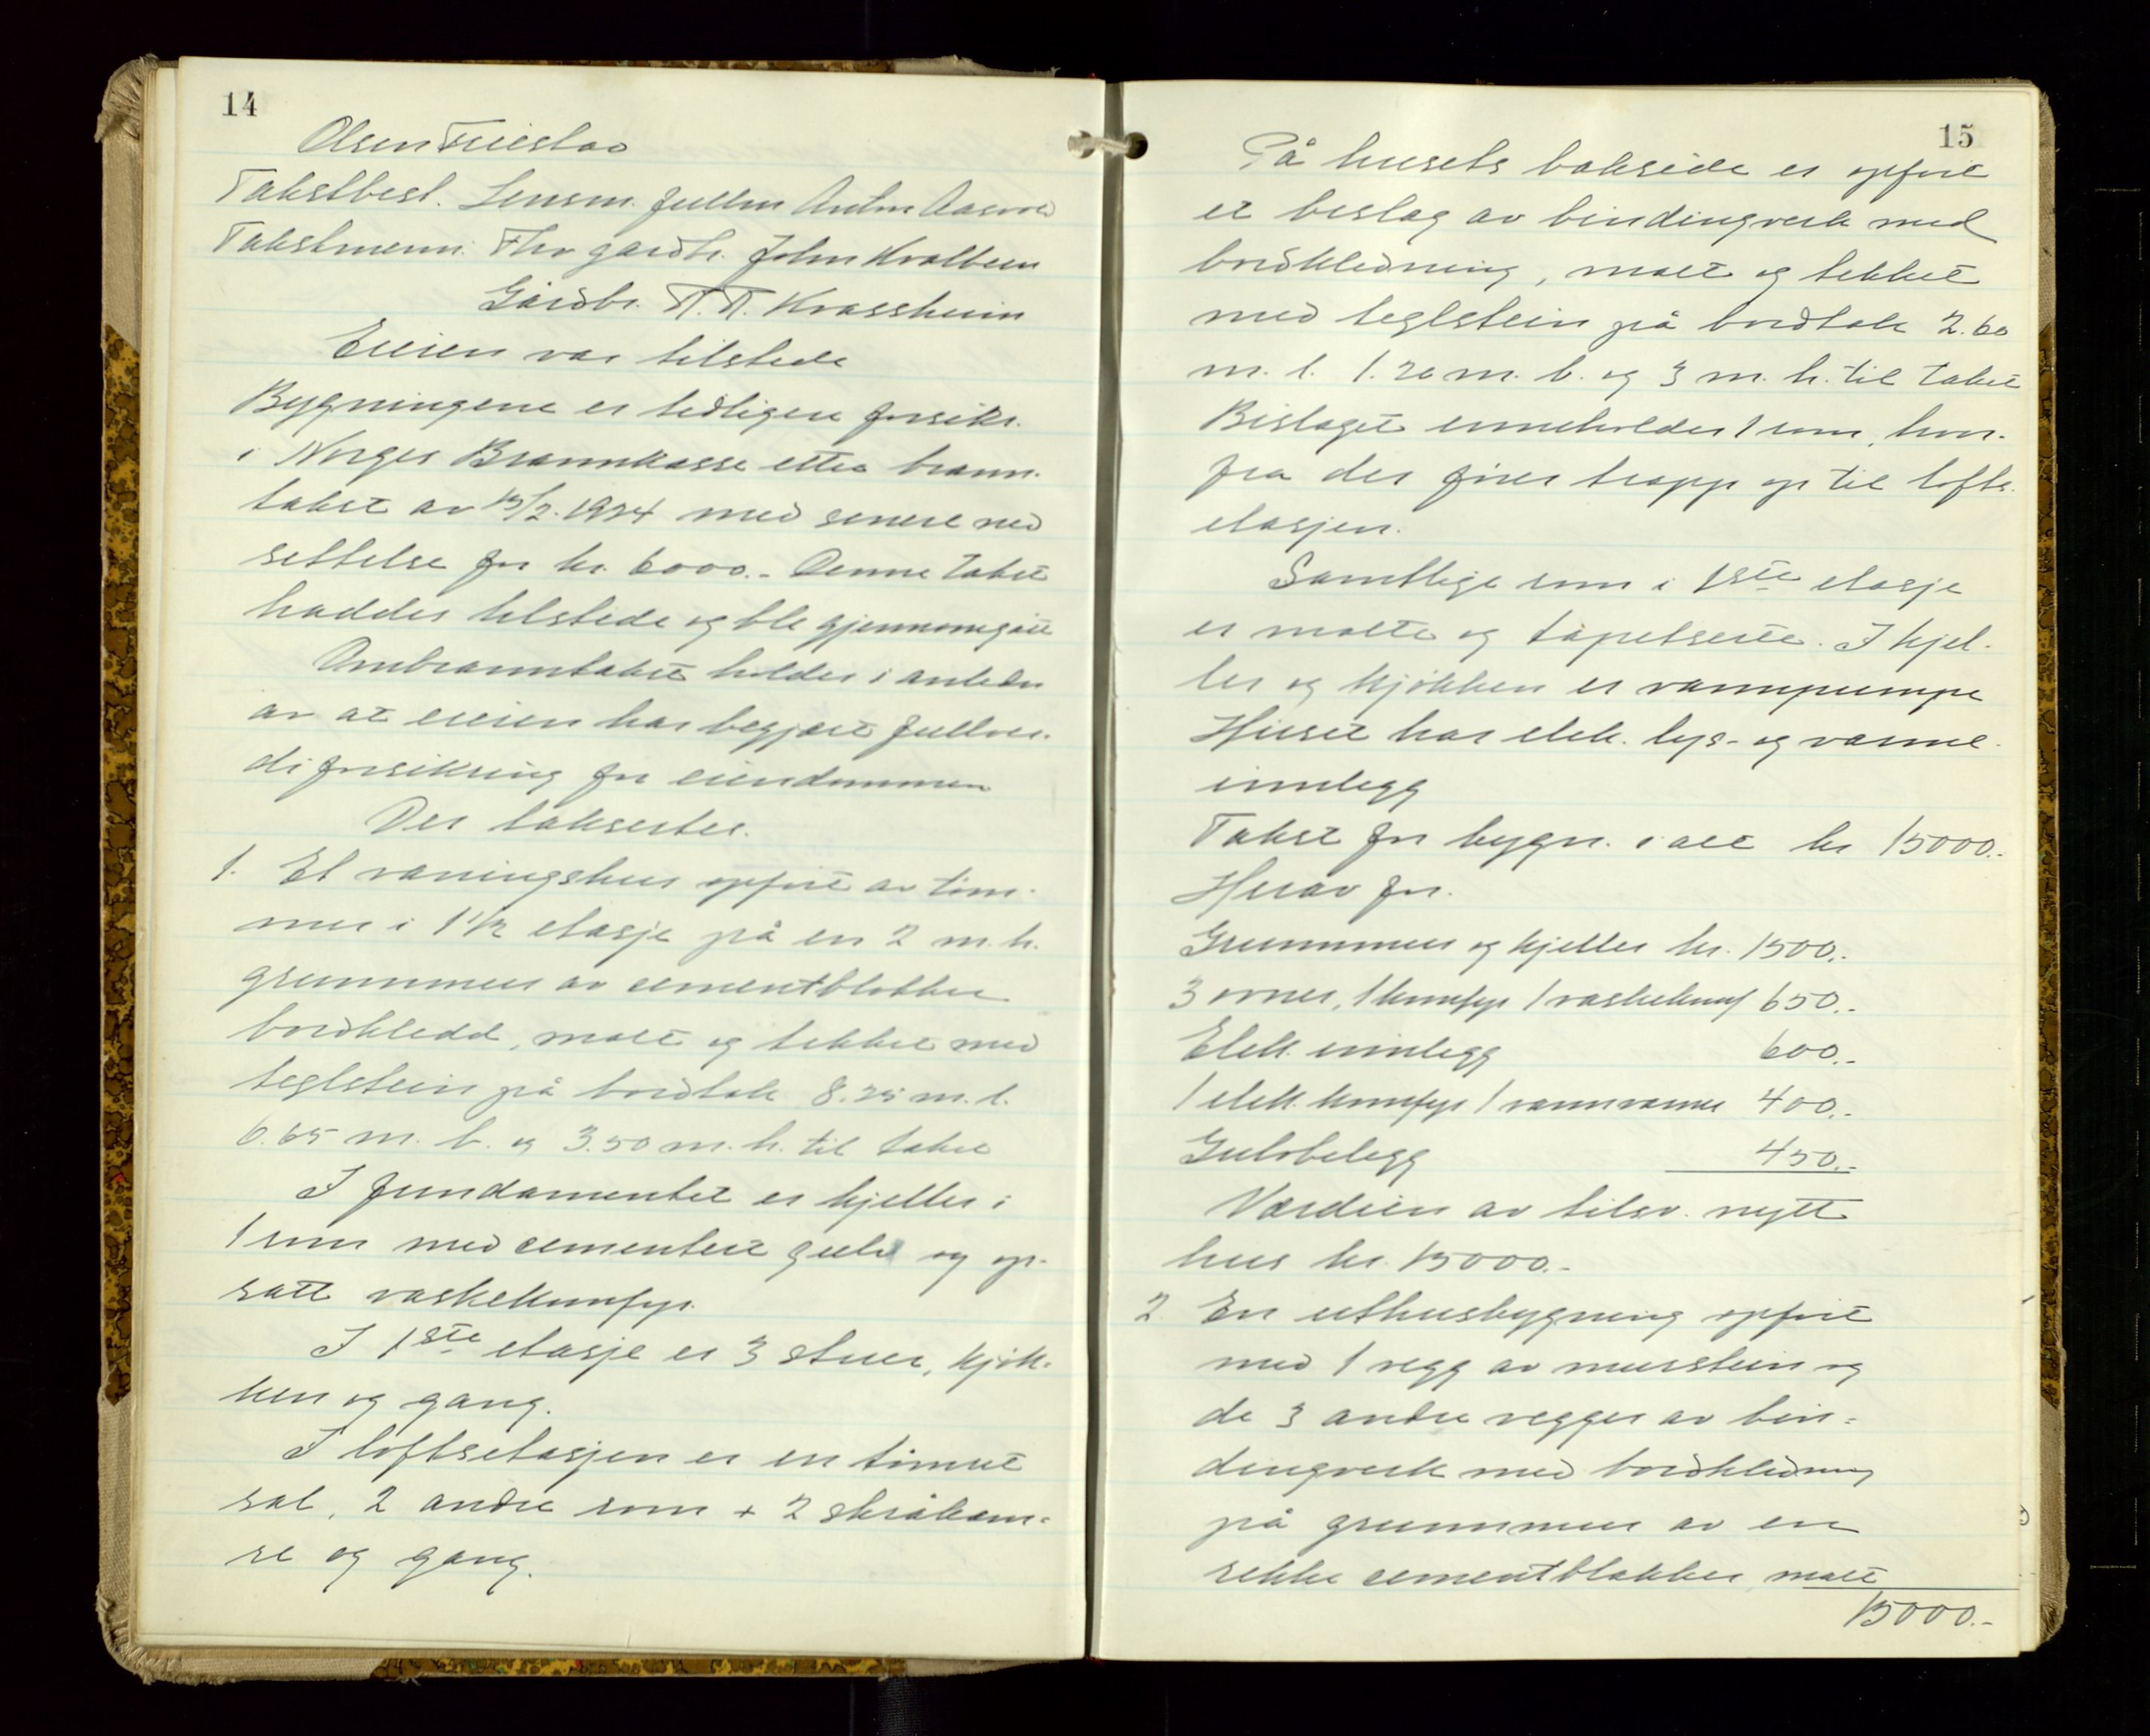 14
Olsen Friestad
Takstbest. Lensm. fullm. Anton
Takstmenn: Fhv gårdbr. John Kvalbein
Gårdbr. T. T. Krossheim
Eieren var tilstede
Bygningene er tidligere forsikr.
i Norges Brannkasse etter brann-
takst av 15/2. 1924 med senere ned
settelse for kr. 6000.- Denne takst
haddes tilstede og ble gjennomgått
Ombranntakst holdes i anledn
av at eieren har begjært fullver-
di forsikring for eiendommen
Der taksertes.
1. Et våningshus opført av tøm-
mer i 1 1/2 etasje på en 2 m. h.
grunnmur av cementblokker
bordkledd, malt og tekket med
teglstein på bordtak 8.25 m. l.
6.65 m. b. og 3.50 m. h. til taket
I fundamentet er kjeller i
1 rum med cementert gulv og op-
satt vaskekomfyr.
I 1ste etasje er 3 stuer, kjøk-
ken og gang.
I loftsetasjen er en tømret
sal, 2 andre rom + 2 skråkam-
re og gang.
15
På husets bakside er opført
et beslag av bindingverk med
bordkledning, malt og tekket
med teglstein på bordtak 2.60
m. l. 1.20 m. b. og 3 m. h. til taket
Bislaget inneholder 1 rom, hvor-
fra der fører trapp op til lofts-
etasjen.
Samtlige rom i 1ste etasje
er malte og tapetserte. I kjel-
ler og kjøkken er vannpumpe
Huset har elek. lys- og varme-
innlegg
Takst for bygn. i alt kr 15000.-
Herav for.
Grunnmur og kjeller kr. 1500.-
3 ovner, 1 komfyr 1 vaskekomf 650.-
Elek. innlegg 600.-
1 elek. komfyr 1 vannvarmer 400.-
Gulvbelegg 450.-
Verdien av tilsv. nytt
hus kr. 15000.-
2. En uthusbygning opført
med 1 vegg av murstein og
de 3 andre vegger av bin-
dingverk med bordkledning
på grunnmur av en
rekke cementblokker, malt
15000.-